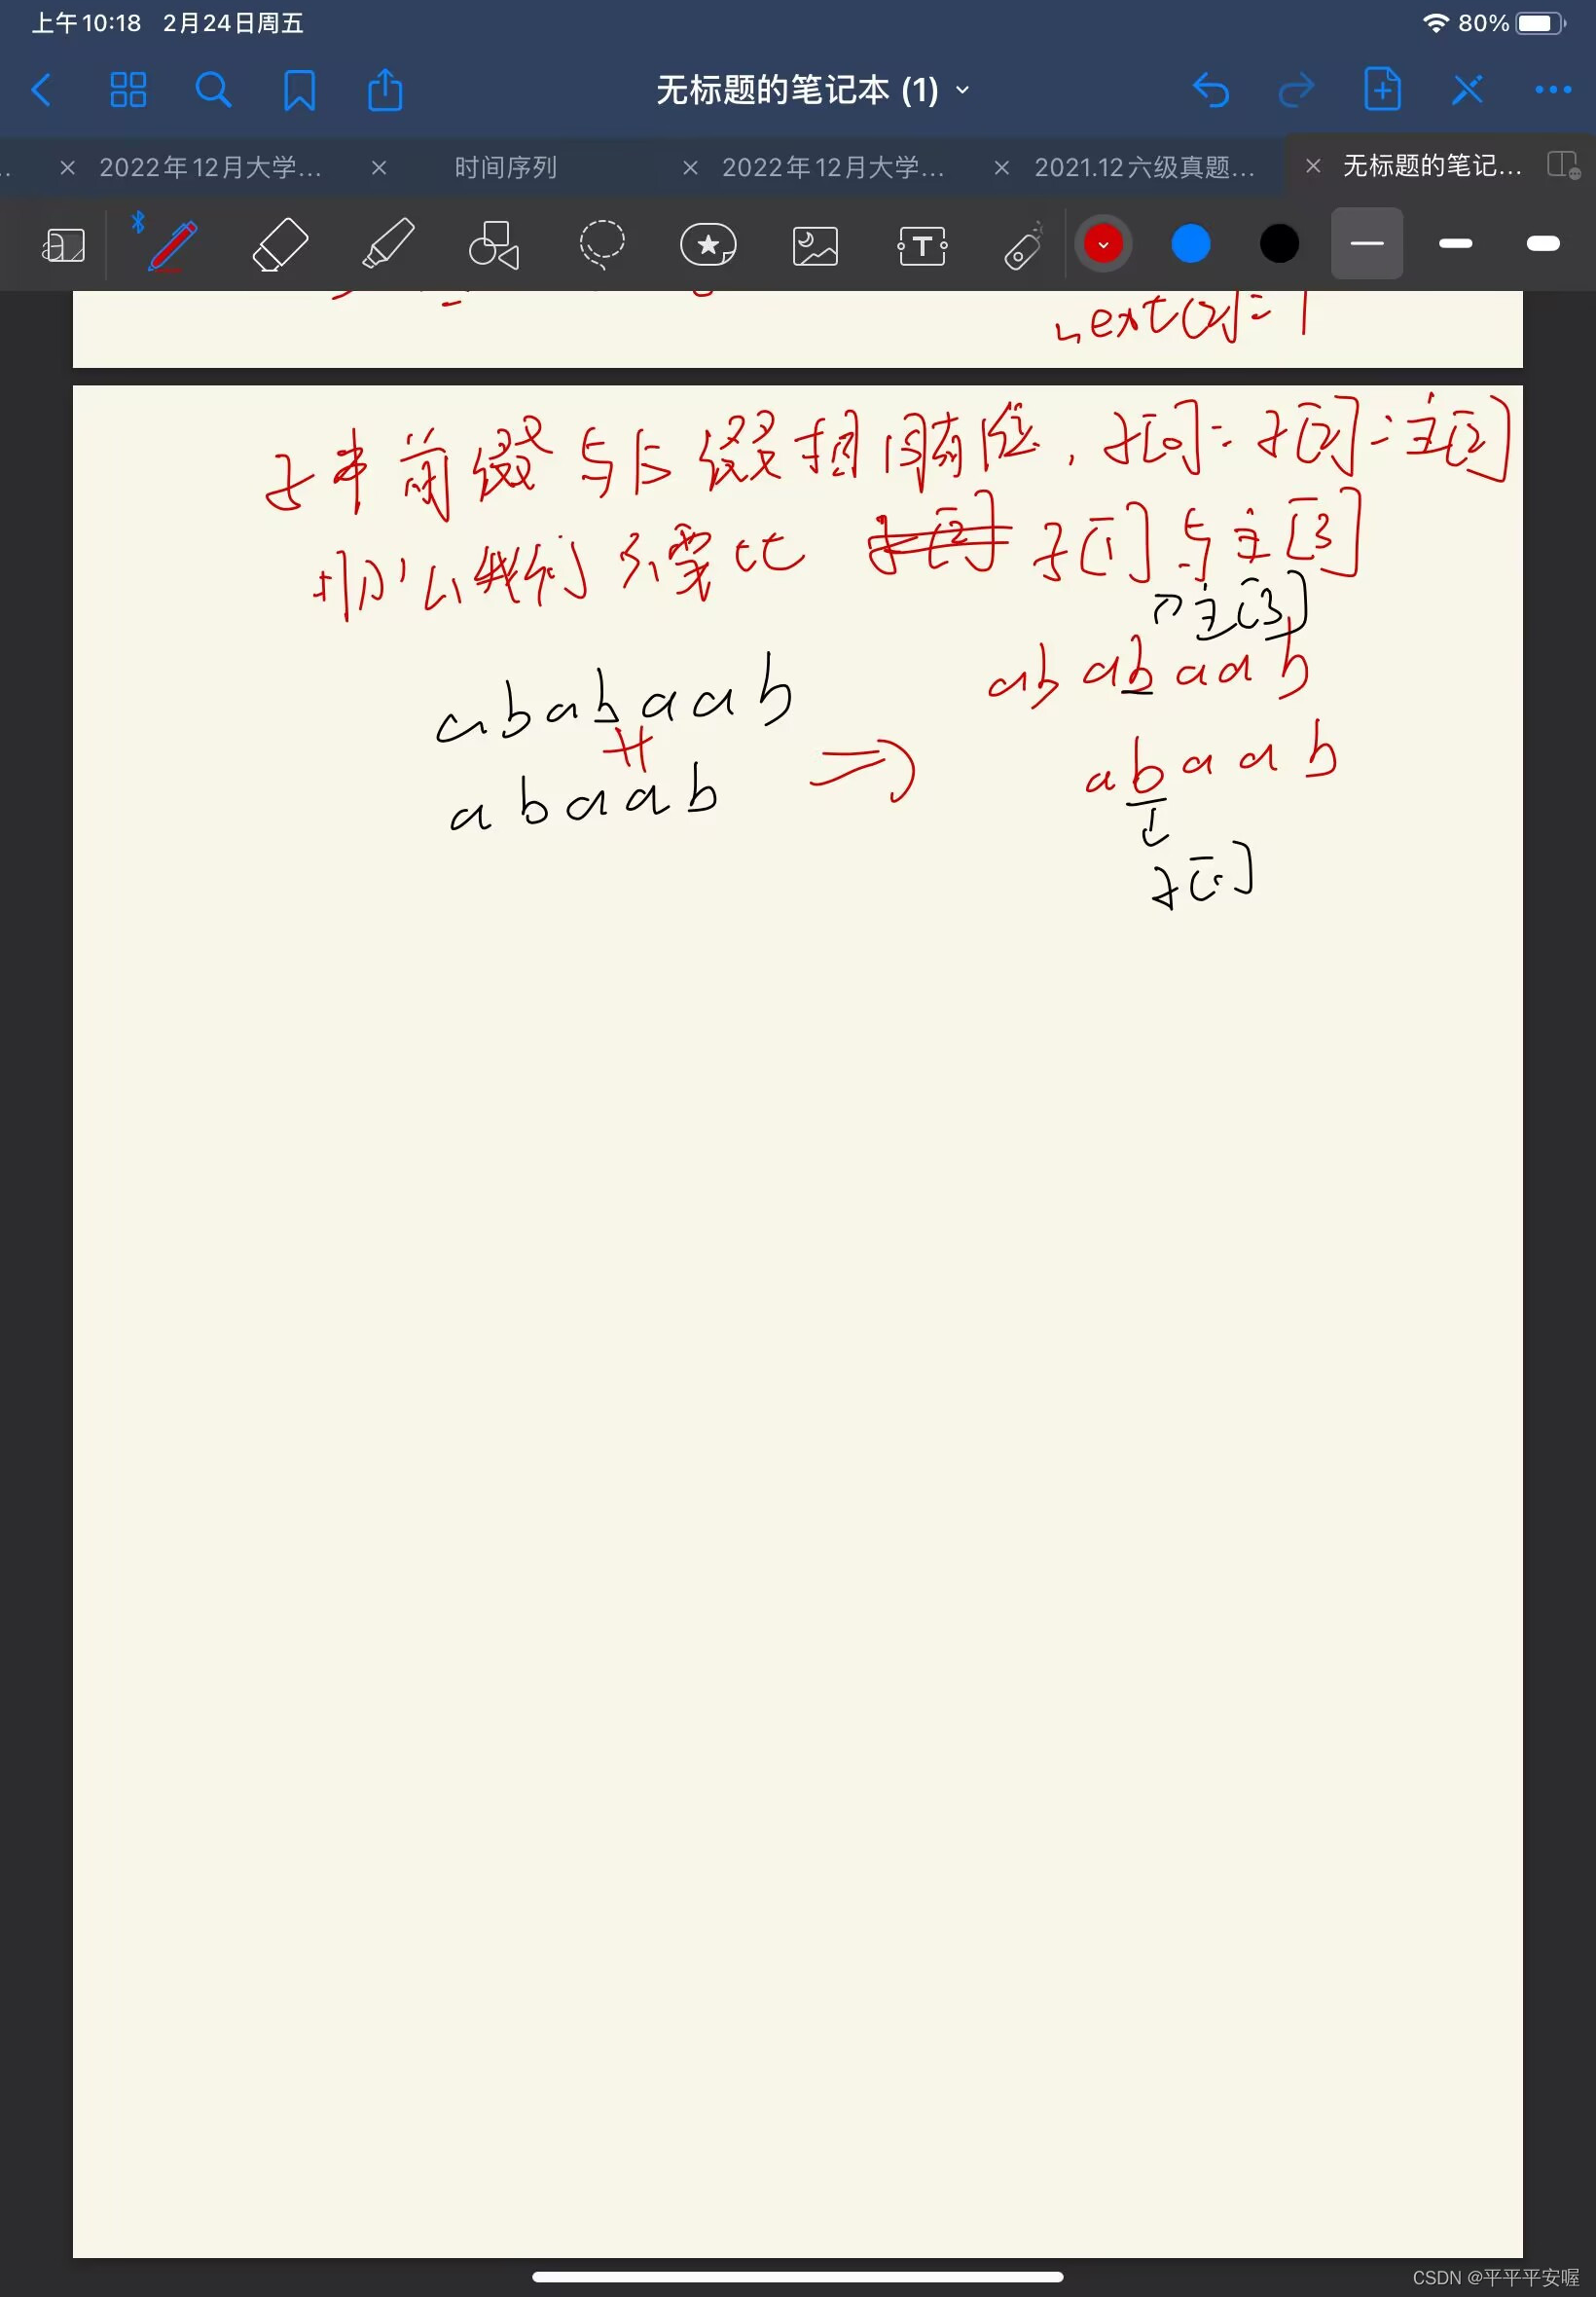 上午10:18 2月24日周五 80%
无标题的笔记本 (1)
2022年12月大学... 时间序列 2022年12月大学... 2021.12六级真题... 无标题的笔记...
next[2]=1
子串前缀与后缀相同有值,子[0]=子[2]=主[2]
那么我们只需比 子[1]与主[3]
主[3]
ababaab ababaab
abaab abaab
子[1]
CSDN @平平平安喔